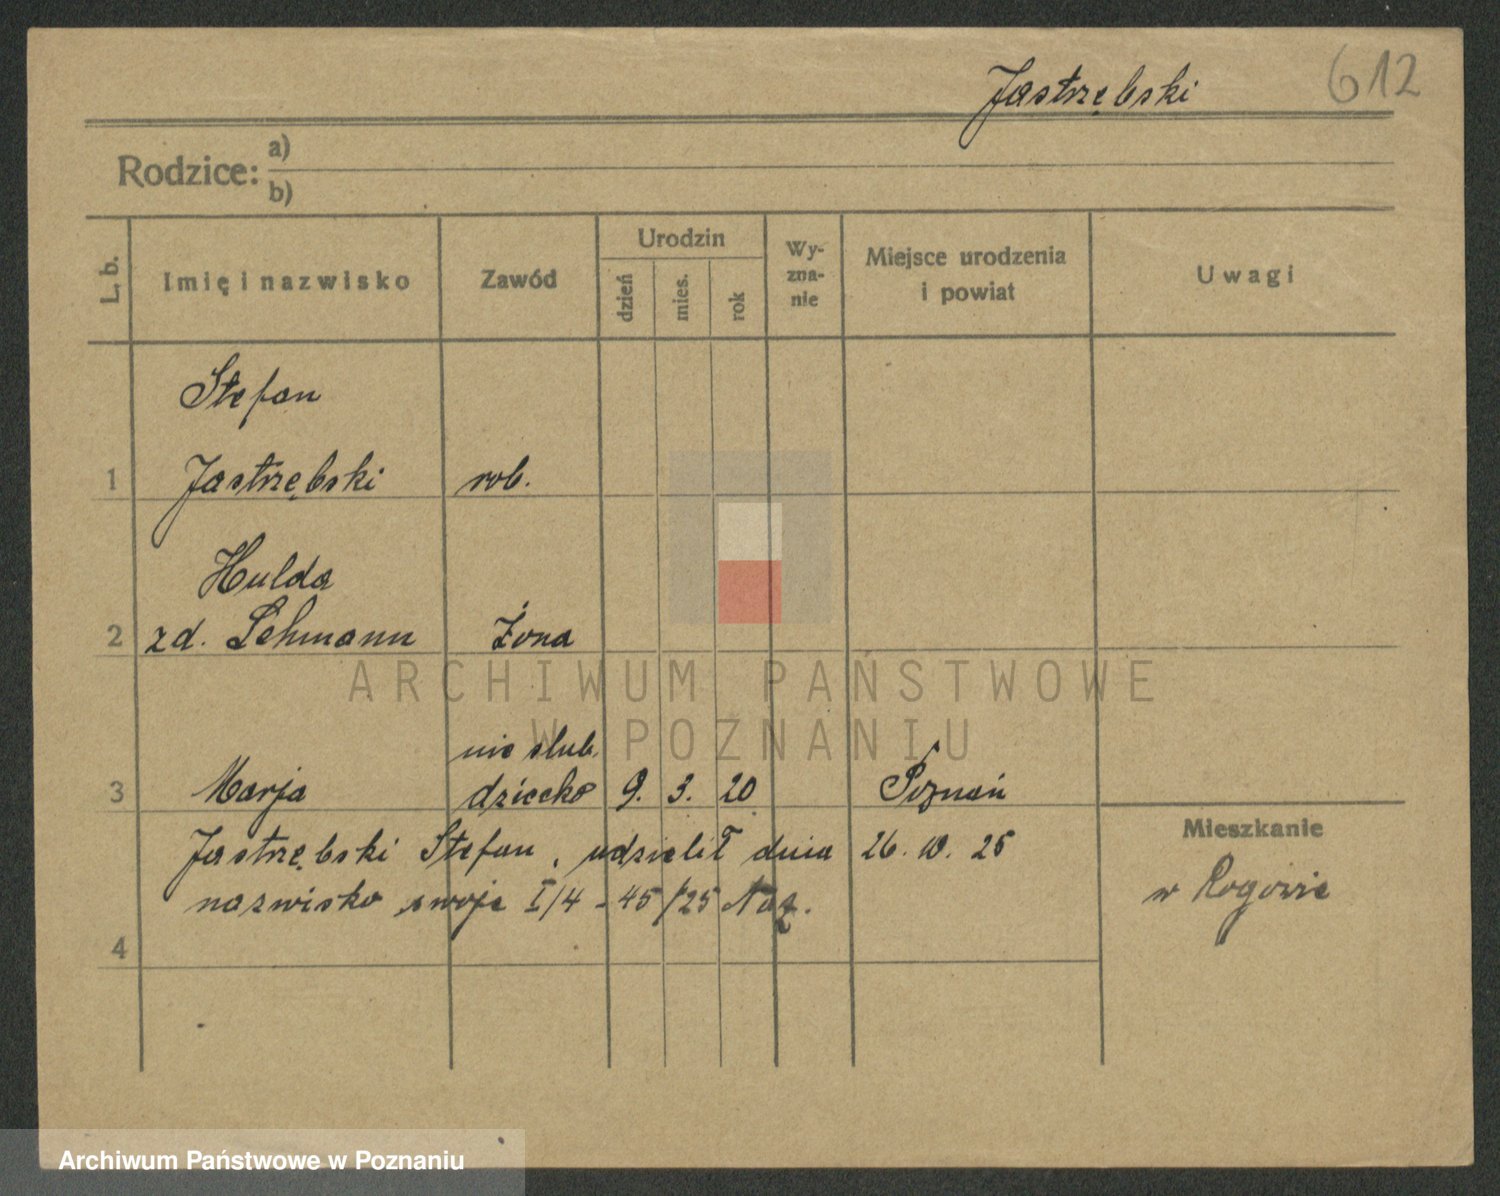 Jastrzębski
612
Rodzice:
a)
b)
L. b.
Imię i nazwisko
Zawód
Urodzin
dzień
mies.
rok
Wy-
zna-
nie
Miejsce urodzenia
i powiat
Uwagi
Stefan
1 Jastrzębski rob.
Hulda
2 zd. Lehmann Żona
nieślub.
3 Marja dziecko 9. 3. 20 Poznań
Mieszkanie
w Rogowie
Jastrzębski Stefan, udzielił dnia 26. 10. 25
nazwisko swoje I/4 - 45/25 Naz.
4
ARCHIWUM PAŃSTWOWE
W POZNANIU
Archiwum Państwowe w Poznaniu